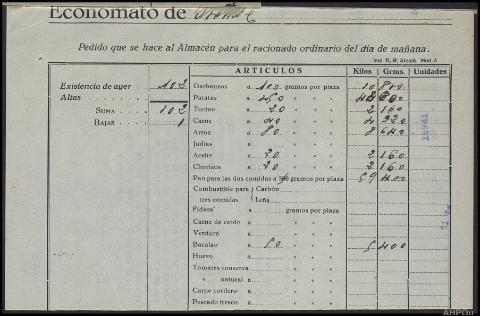 Economato de
Pedido que se hace al Almacén para el racionado ordinario del día de mañana.
Imp. E. R. Alcalá Mod. 5
ARTICULOS Kilos Grms. Unidades
Existencia de ayer
Altas
SUMA
BAJAS 1
Garbanzos a 100 gramos por plaza 10 800
Patatas a » » » 600
Tocino a 20 » » » 2 160
Carne a 40 » » » 4 320
Arroz a 80 » » » 8 640
Judías a » » »
Aceite a 20 » » » 2 160
Chorizos a 20 » » » 2 160
Pan para las dos comidas a gramos por plaza 59 400
Combustible para Carbón
tres comidas Leña
Fideos a gramos por plaza
Carne de cerdo a » » »
Verdura a » » »
Bacalao a 50 » » » 5 400
Huevo a » » »
Tomates conserva a » » »
» natural a » » »
Carne cordero a » » »
Pescado fresco a » » »
AHPOu